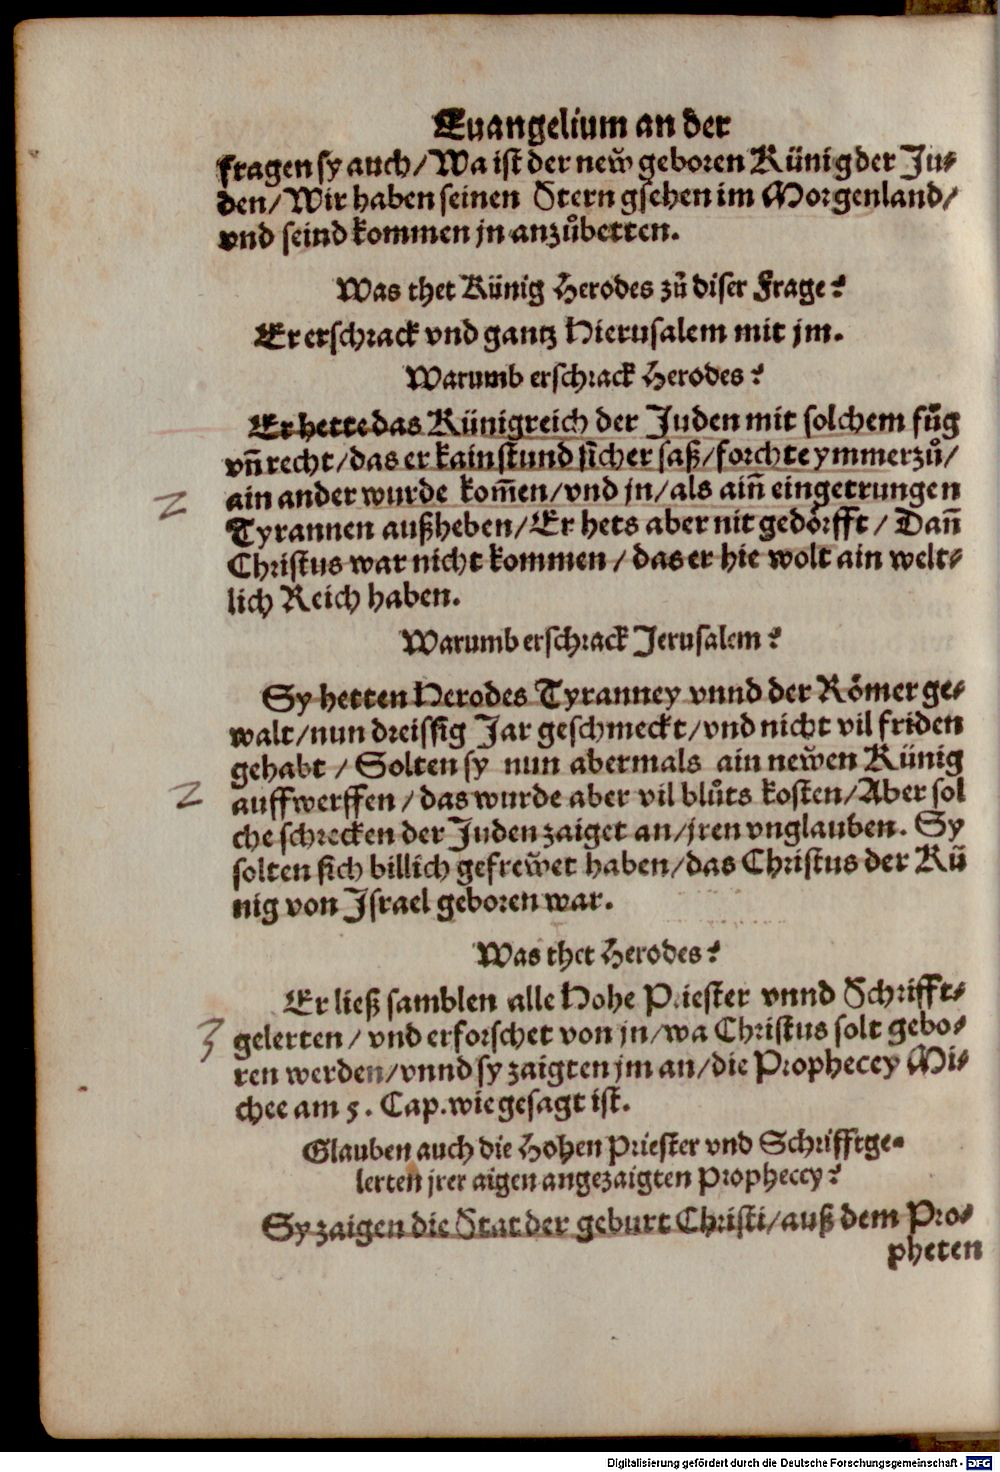 Euangelium an der
fragen sy auch/Wa ist der new̌ geboren Künig der Ju⸗
den/Wir haben seinen Stern gsehen im Morgenland/
vnd seind kommen jn anzůbetten.
Was thet Künig Herodes zů diser Frage?
Er erschrack vnd gantz Hierusalem mit jm.
Warumb erschrack Herodes?
Er hette das Künigreich der Juden mit solchem fůg
vñ recht/das er kain stund sicher saß/forchte ymmerzů/
2 ain ander wurde kom̃en/vnd jn/als aiñ eingetrungen
Tyrannen außheben/Er hets aber nit gedörfft/ Dañ
Christus war nicht kommen/das er hie wolt ain welt⸗
lich Reich haben.
Warumb erschrack Jerusalem?
Sy hetten Herodes Tyranney vnnd der Römer ge⸗
walt/nun dreissig Jar geschmeckt/vnd nicht vil friden
gehabt/ Solten sy nun abermals ain new̌en Künig
2 auffwerffen/das wurde aber vil blůts kosten/Aber sol
che schrecken der Juden zaiget an/jren vnglauben. Sy
solten sich billich gefrew̌et haben/das Christus der Kü
nig von Israel geboren war.
Was thet Herodes?
Er ließ samblen alle Hohe Priester vnnd Schrifft⸗
3 gelerten/ vnd erforschet von jn/wa Christus solt gebo⸗
ren werden/vnnd sy zaigten jm an/die Prophecey Mi⸗
chee am 5. Cap.wie gesagt ist.
Glauben auch die Hohen Priester vnd Schrifftge⸗
lerten jrer aigen angezaigten Prophecey?
Sy zaigen die Stat der geburt Christi/auß dem Pro⸗
pheten
Digitalisierung gefördert durch die Deutsche Forschungsgemeinschaft - DFG